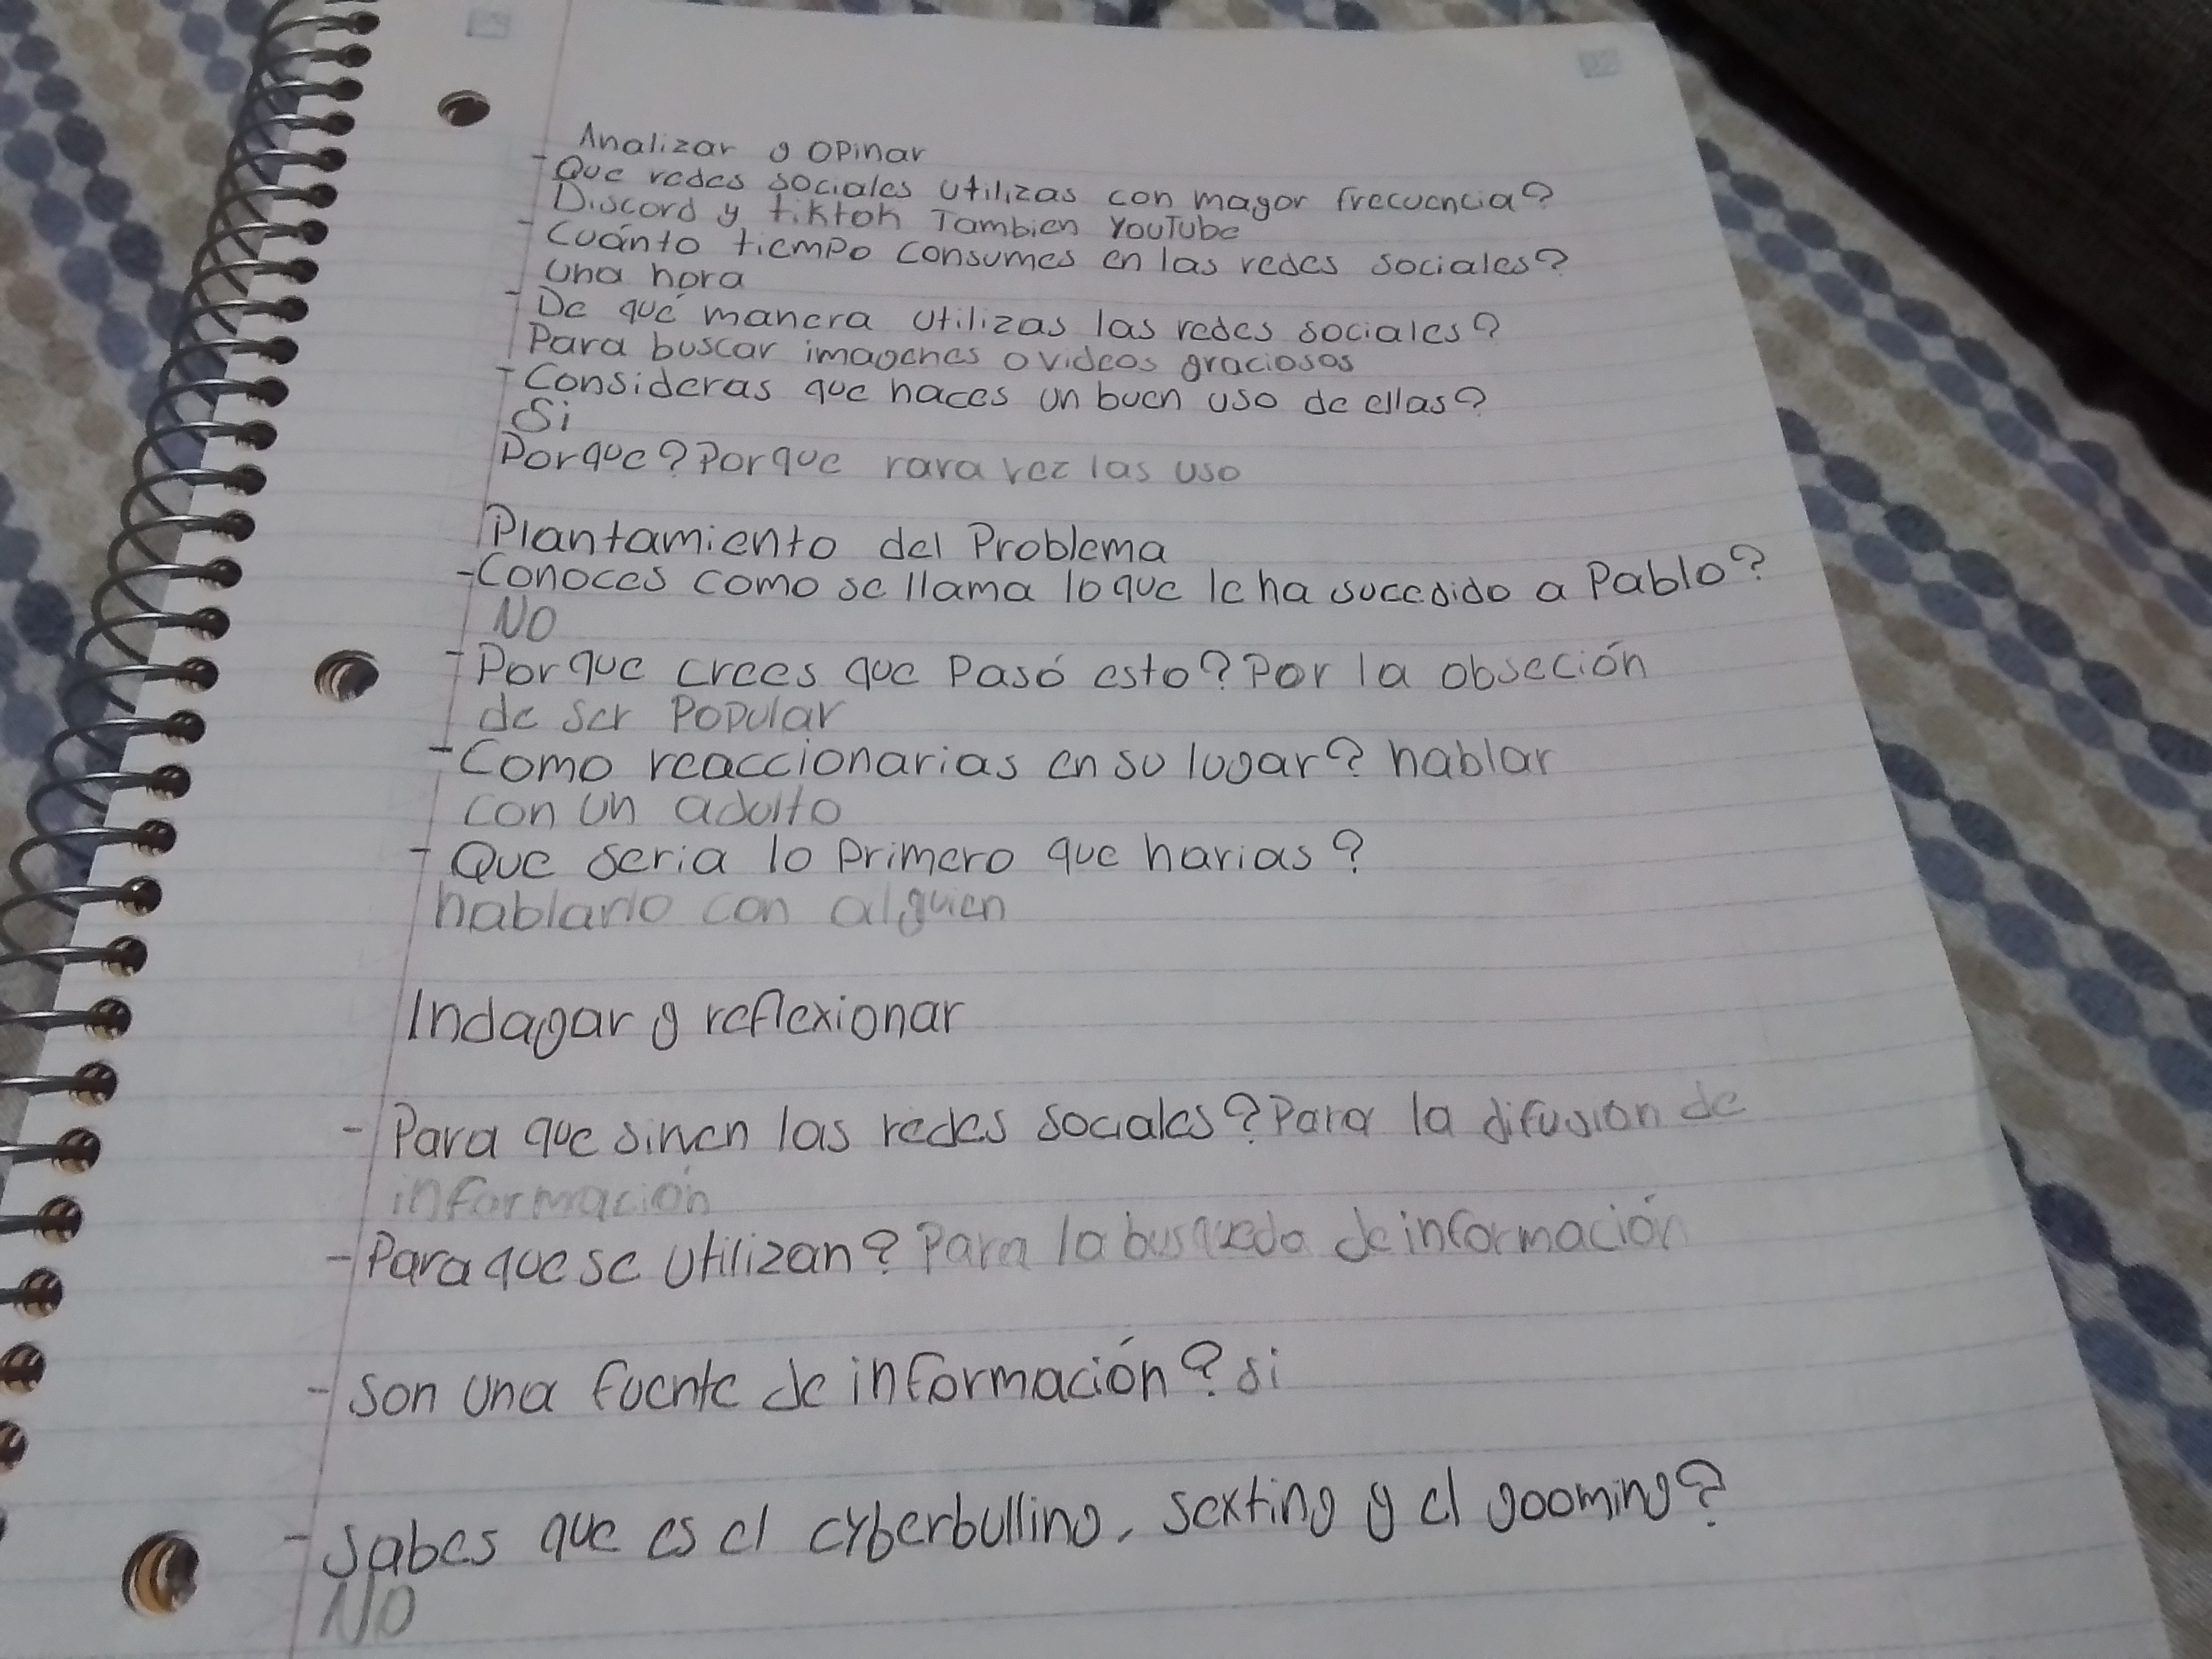 Analizar y opinar
- Que redes sociales utilizas con mayor frecuencia?
Discord y tiktok Tambien YouTube
- Cuánto tiempo consumes en las redes sociales?
una hora
- De qué manera utilizas las redes sociales?
Para buscar imagenes o videos graciosos
- Consideras que haces un buen uso de ellas?
Si
Porque? Porque rara vez las uso
Plantamiento del Problema
- Conoces como se llama lo que le ha sucedido a Pablo?
NO
- Porque crees que Pasó esto? Por la obseción
de ser Popular
- Como reaccionarias en su lugar? hablar
con un adulto
- Que seria lo primero que harias?
hablarlo con alguien
Indagar y reflexionar
- Para que sirven las redes sociales? Para la difusion de
información
- Para que se utilizan? Para la busqueda de información
- Son una fuente de información? si
- Sabes que es el cyberbulling, sexting y el gooming?
NO